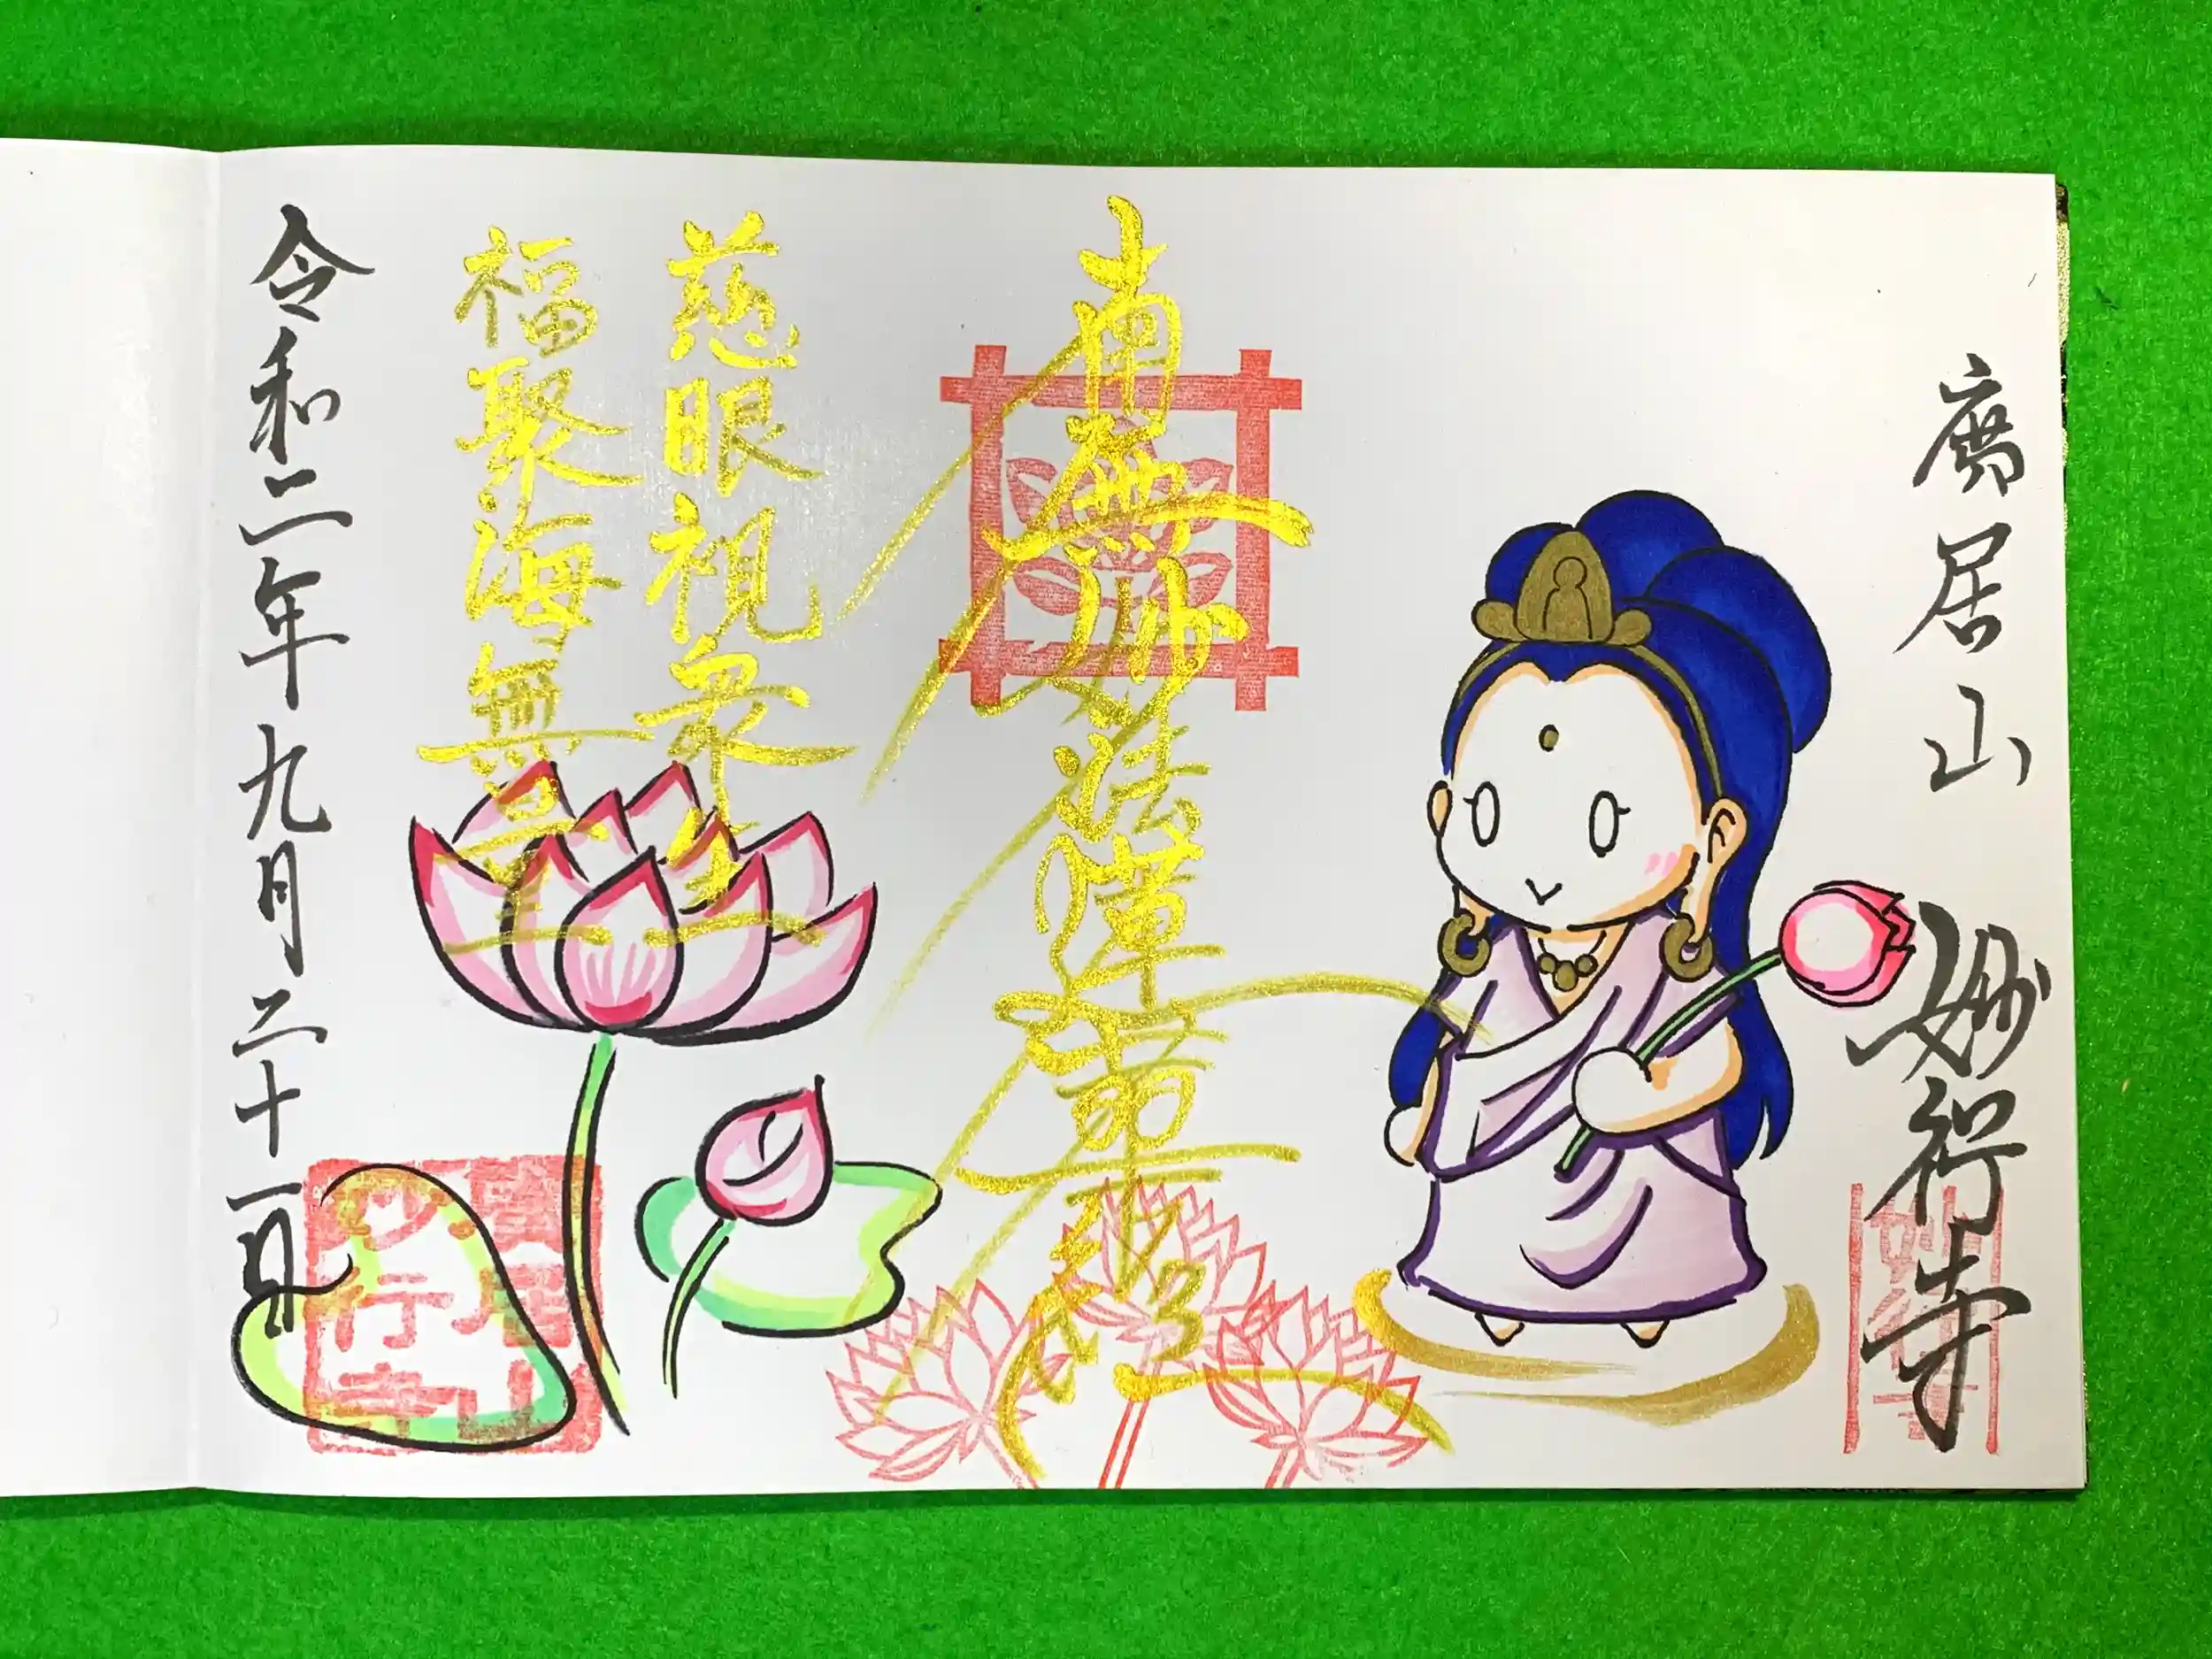 廣居山 妙行寺
南無妙法蓮華経
慈眼視衆生
福聚海無量
令和二年九月二十一日
廣居山
妙行寺
妙行寺